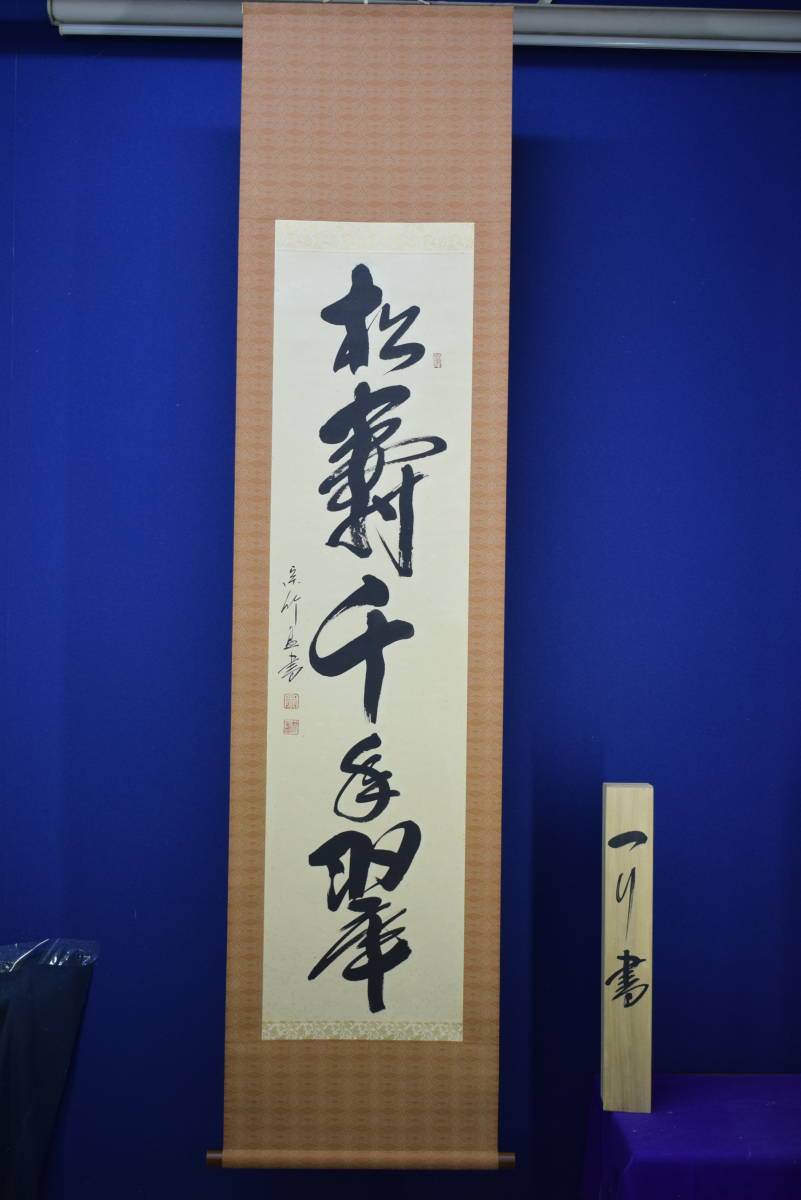 松壽千年翠
宗竹益書
一行書